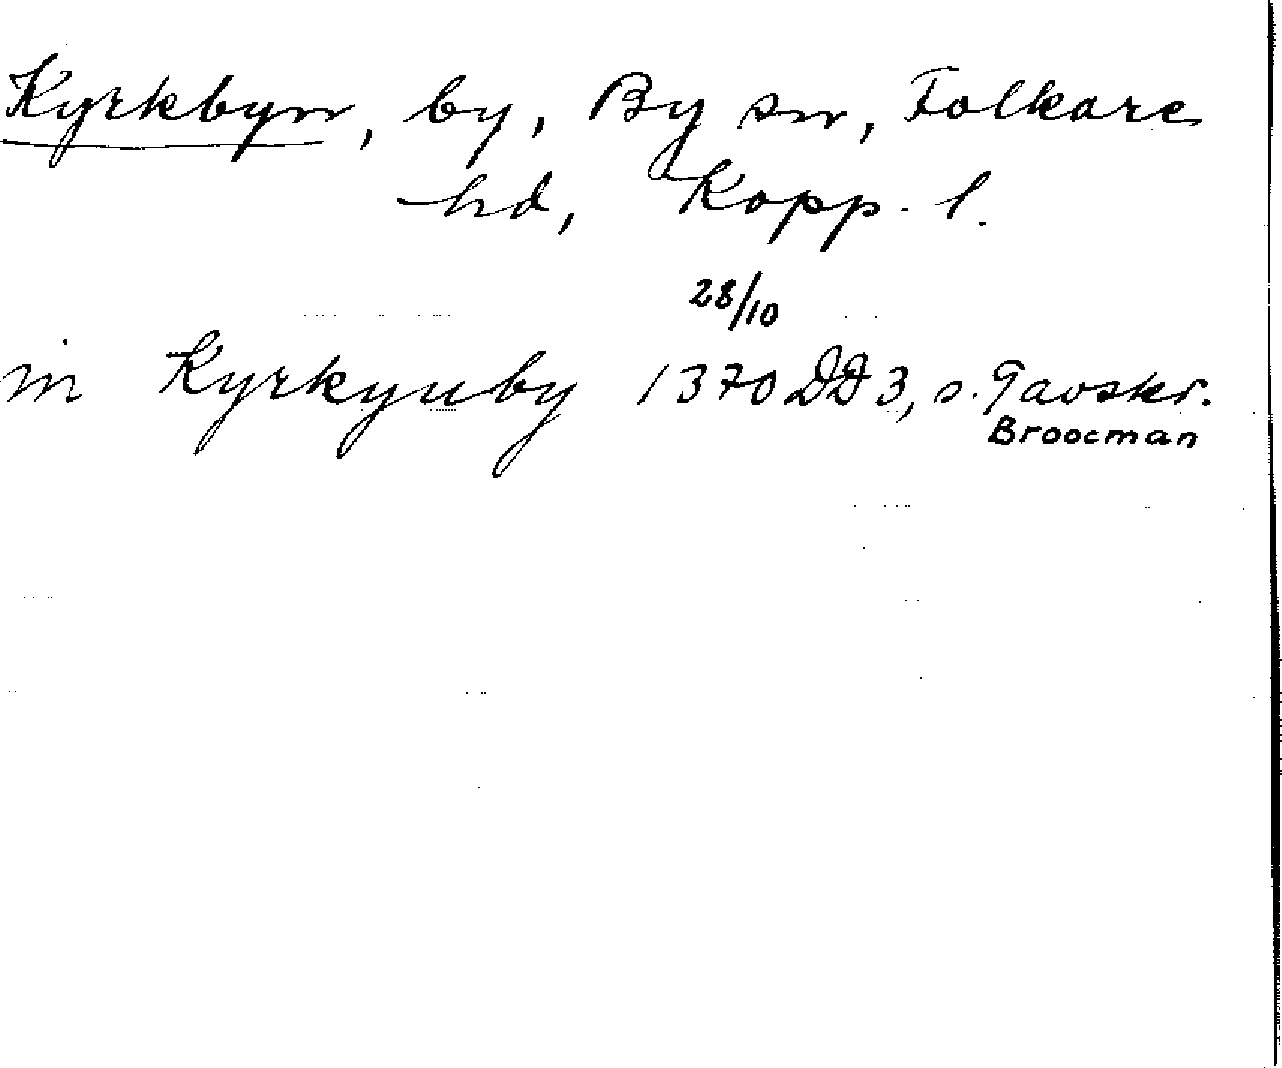 Kyrkbyn, by, By sn, Folkare
hd, Kopp. l.
28/10
in Kyrkyuby 1370 DD 3, s. 9 avskr.
Broocman